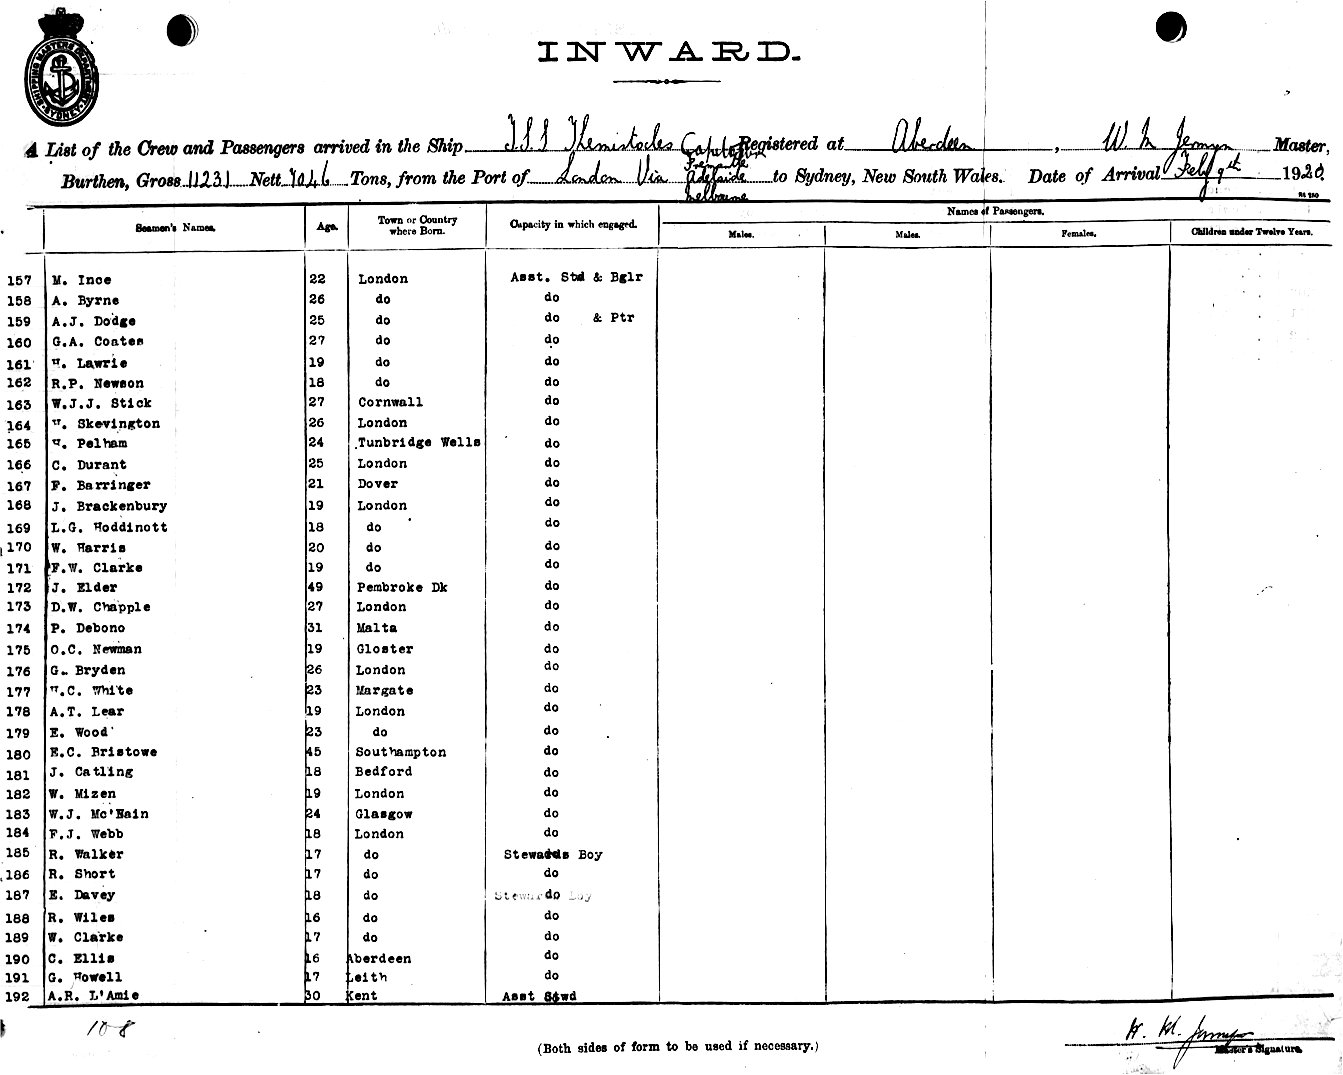 SHIPPING MASTERS DEPARTMENT SYDNEY
INWARD.
A List of the Crew and Passengers arrived in the Ship T.S.S Themistocles Registered at Aberdeen, W M Jermyn Master,
Capetown
Fremantle
Burthen, Gross 11231 Nett 7046 Tons, from the Port of London Via Adelaide to Sydney, New South Wales. Date of Arrival Feby 9th 1920
Melbourne
Seamen's Names. Age. Town or Country where Born. Capacity in which engaged. Names of Passengers.
Males. Males. Females. Children under Twelve Years.
157 M. Ince 22 London Asst. Std & Bglr
158 A. Byrne 26 do do
159 A.J. Dodge 25 do do & Ptr
160 G.A. Coates 27 do do
161 W. Lawrie 19 do do
162 R.P. Newson 18 do do
163 W.J.J. Stick 27 Cornwall do
164 W. Skevington 26 London do
165 W. Pelham 24 Tunbridge Wells do
166 C. Durant 25 London do
167 F. Barringer 21 Dover do
168 J. Brackenbury 19 London do
169 L.G. Hoddinott 18 do do
170 W. Harris 20 do do
171 F.W. Clarke 19 do do
172 J. Elder 49 Pembroke Dk do
173 D.W. Chapple 27 London do
174 P. Debono 31 Malta do
175 O.C. Newman 19 Gloster do
176 G. Bryden 26 London do
177 W.C. White 23 Margate do
178 A.T. Lear 19 London do
179 E. Wood 23 do do
180 E.C. Bristowe 45 Southampton do
181 J. Catling 18 Bedford do
182 W. Mizen 19 London do
183 W.J. Mc'Nain 24 Glasgow do
184 F.J. Webb 18 London do
185 R. Walker 17 do Stewards Boy
186 R. Short 17 do do
187 E. Davey 18 do do
188 R. Wiles 16 do do
189 W. Clarke 17 do do
190 C. Ellis 16 Aberdeen do
191 G. Howell 17 Leith do
192 A.R. L'Amie 30 Kent Asst Stwd
108
(Both sides of form to be used if necessary.)
Master's Signature.